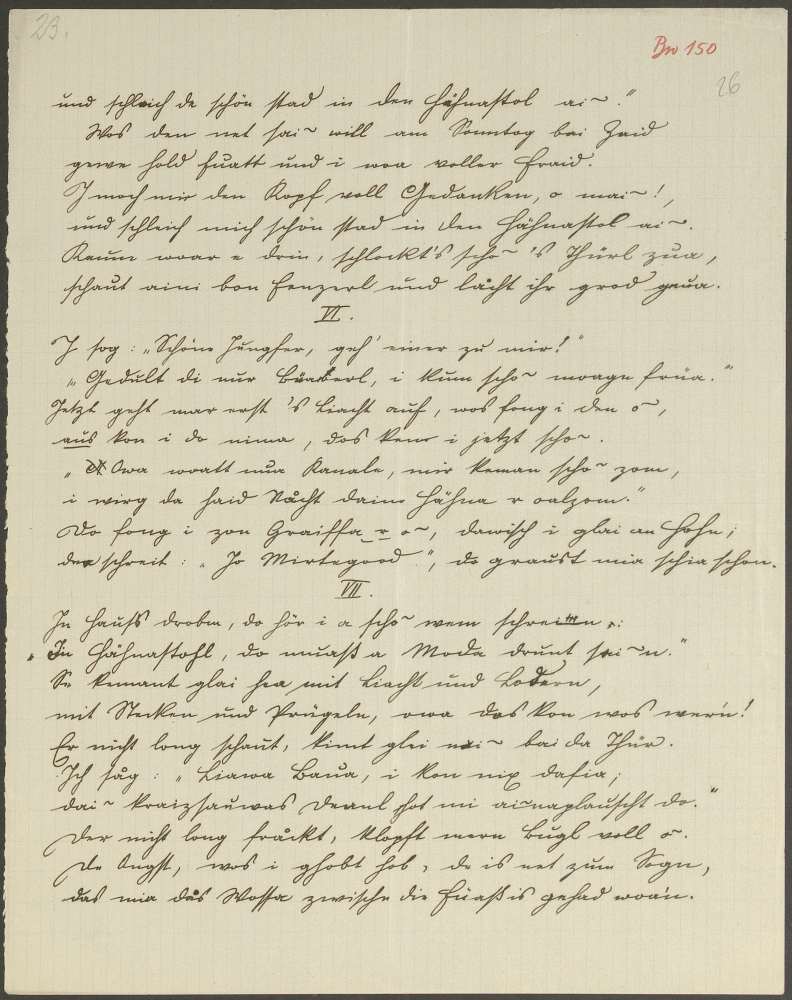 23.
Bw 150
26
und schleich de schön stad in den Hähnastol ai~."
Wos den net sai~ will am Sonntog bai Haid
gewe hold fuatt und i woa voller Fraid.
I moch mir den Kopf voll Gedanken, o mai~!,
und schleich mich schön stad in den Hähnastol ai~.
Kaum woar e drin, schlockt's scho~ 's Thürl zua,
schaut aini bon Fenzerl und lächt ihr grod gnua.
VI.
I sog: „Schöne Jungfer, geh' einer zu mir!"
„Gedult di nur Büaberl, i kum scho~ moagn früa."
Jetzt geht mar erst 's Liacht auf, wos fong i den o~,
aus kon i do nima, dos kenn i jetzt scho~.
„Owa woatt nua Kanale, mir keman scho~ zom,
i wirg da haid Nåcht daine Hähna r oalzom."
Do fong i zon Graiffa r o~, dawisch i glai an Hohn;
der schreit: „Jo Mirtegood!", do graust mia schia schon.
VII.
In Hauss drobm, do hör i a scho~ wem schrei'n:
„In Hähnastohl, do muass a Moda drunt sai~n."
Se kemant glai hea mit Liacht und Lodern,
mit Stecken und Prügeln, owa dos kon wos wer'n!
Er nicht long schaut, kimt glei nai~ bai da Thür.
Ich såg: „Liawa Baua, i kon nix dafia;
dai~ kraizsauwas Deanl hot mi ai~naplauscht do."
Der nicht long fråckt, klopft mern Bugl voll o~.
De Angst, wos i ghobt hob, de is net zum Sogn,
das mia dås Wossa zwischn die Füass is gehad woa'n.